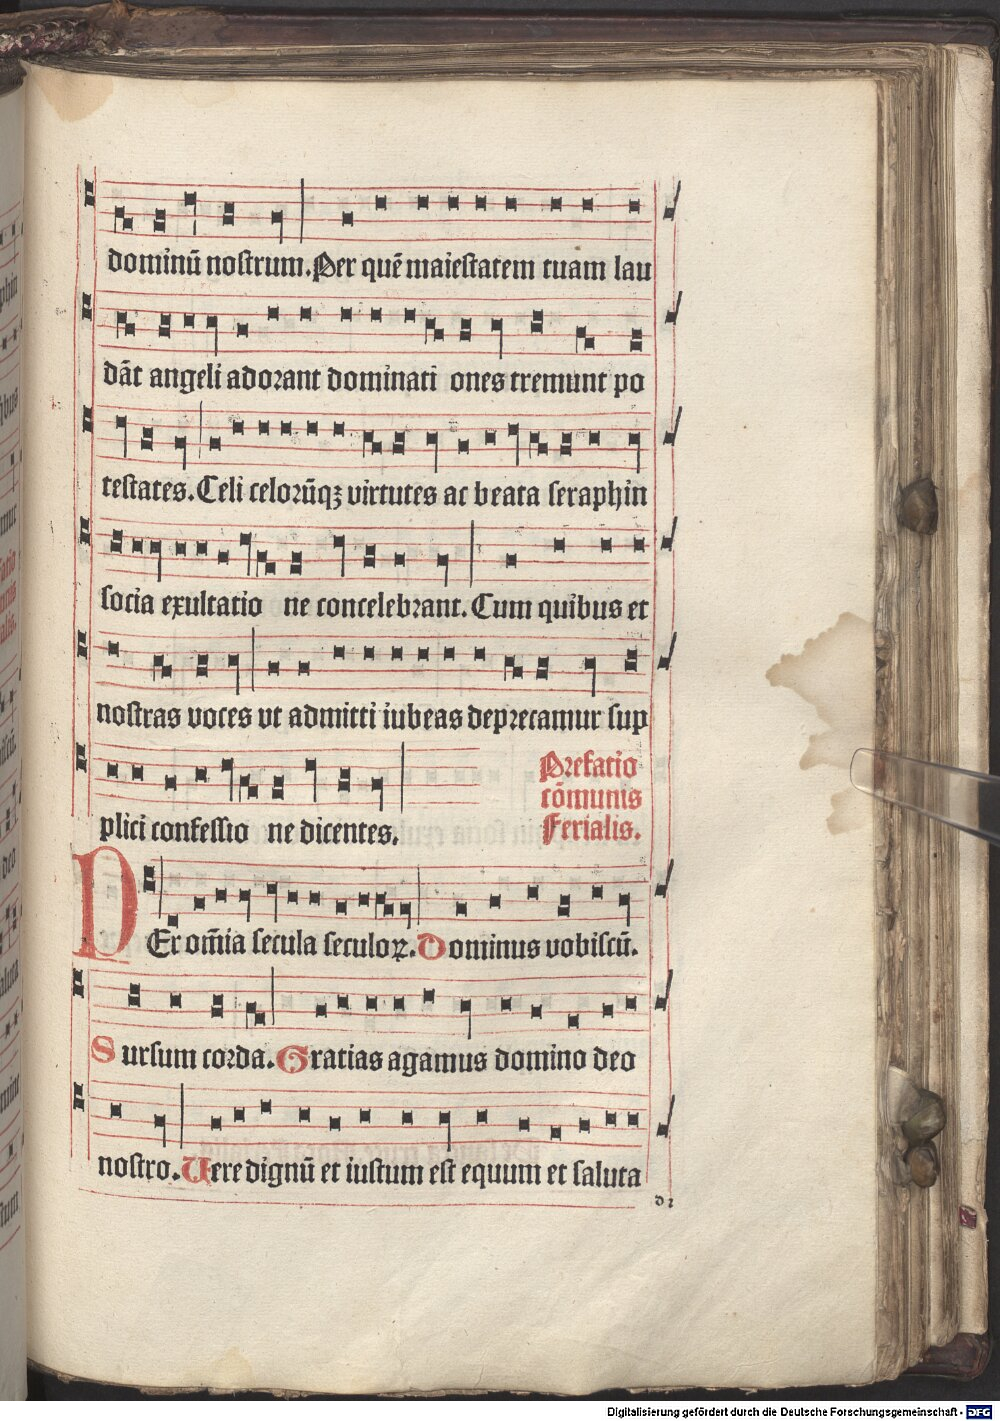 dominū nostrum. Per quē maiestatem tuam lau
dāt angeli adorant dominati ones tremunt po
testates. Celi celorūqꝫ virtutes ac beata seraphin
socia exultatio ne concelebrant. Cum quibus et
nostras voces vt admitti iubeas deprecamur sup
plici confessio ne dicentes.
Prefatio
cōmunis
Ferialis.
PEr om̄ia secula seculoꝝ. Dominus vobiscū.
Sursum corda. Gratias agamus domino deo
nostro. Uere dignū et iustum est equum et saluta
d 2
Digitalisierung gefördert durch die Deutsche Forschungsgemeinschaft - DFG